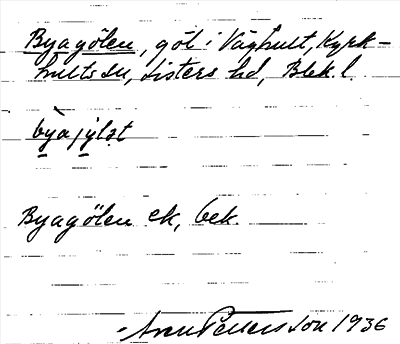 Byagölen, göl i Vághult, Kyrk-
hults sn, Listers hd, Blek. l.
byajylət
Byagölen ek, bek.
Pettersson 1936